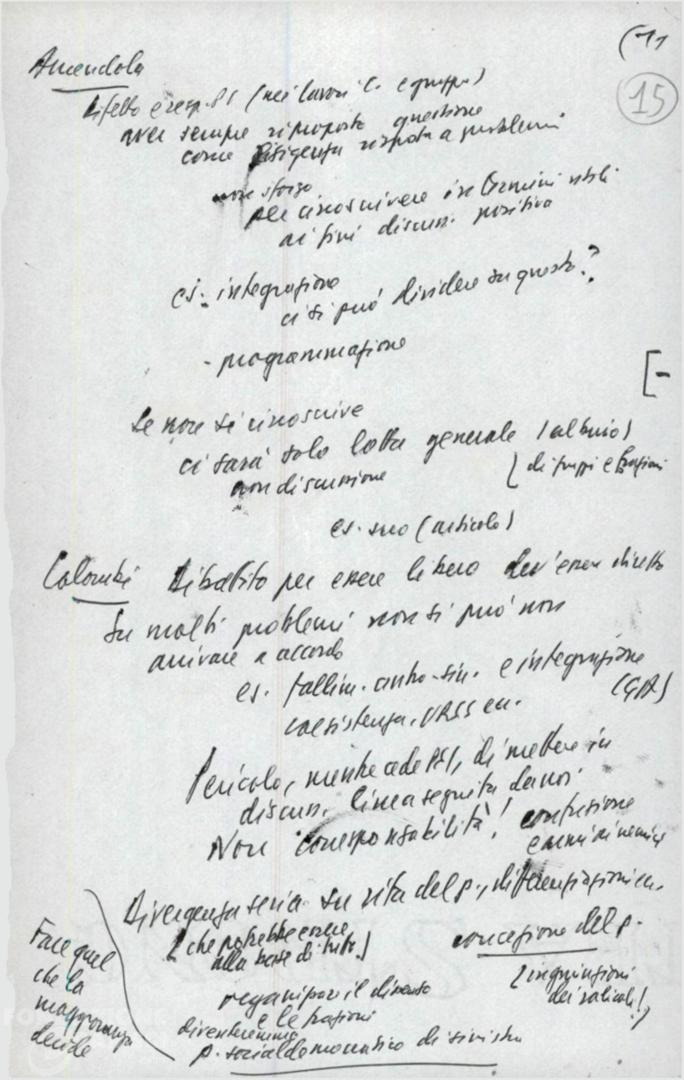 (11
15
Amendola
difetto e resp. (nei lavori C. e gruppi)
aver sempre riproposto questione
come esigenza risposta a problemi
non sforzo
per circoscrivere in termini utili
ai fini discuss. positiva
es. integrazione
ci si può dividere su questo?
- programmazione
[-
Se non si circoscrive
ci sarà solo lotta generale (al buio)
non discussione
[di gruppi e frazioni
es. suo (articolo)
Colombi Dibattito per essere libero dev'essere diretto
Su molti problemi non si può non
arrivare a accordo
es. fallim. centro-sin. e integrazione
coesistenza, URSS ecc.
Pericolo, mentre cede PSI, di mettere in
discuss. linea seguita da noi
Non corresponsabilità! confusione
Divergenza seria su vita del p., differenziazioni ecc.
[che potrebbe essere
alla base di tutto]
concezione del p.
Fare quel
che la
maggioranza
decide
il dissenso
e le frazioni
diventeremmo
p. socialdemocratico di sinistra